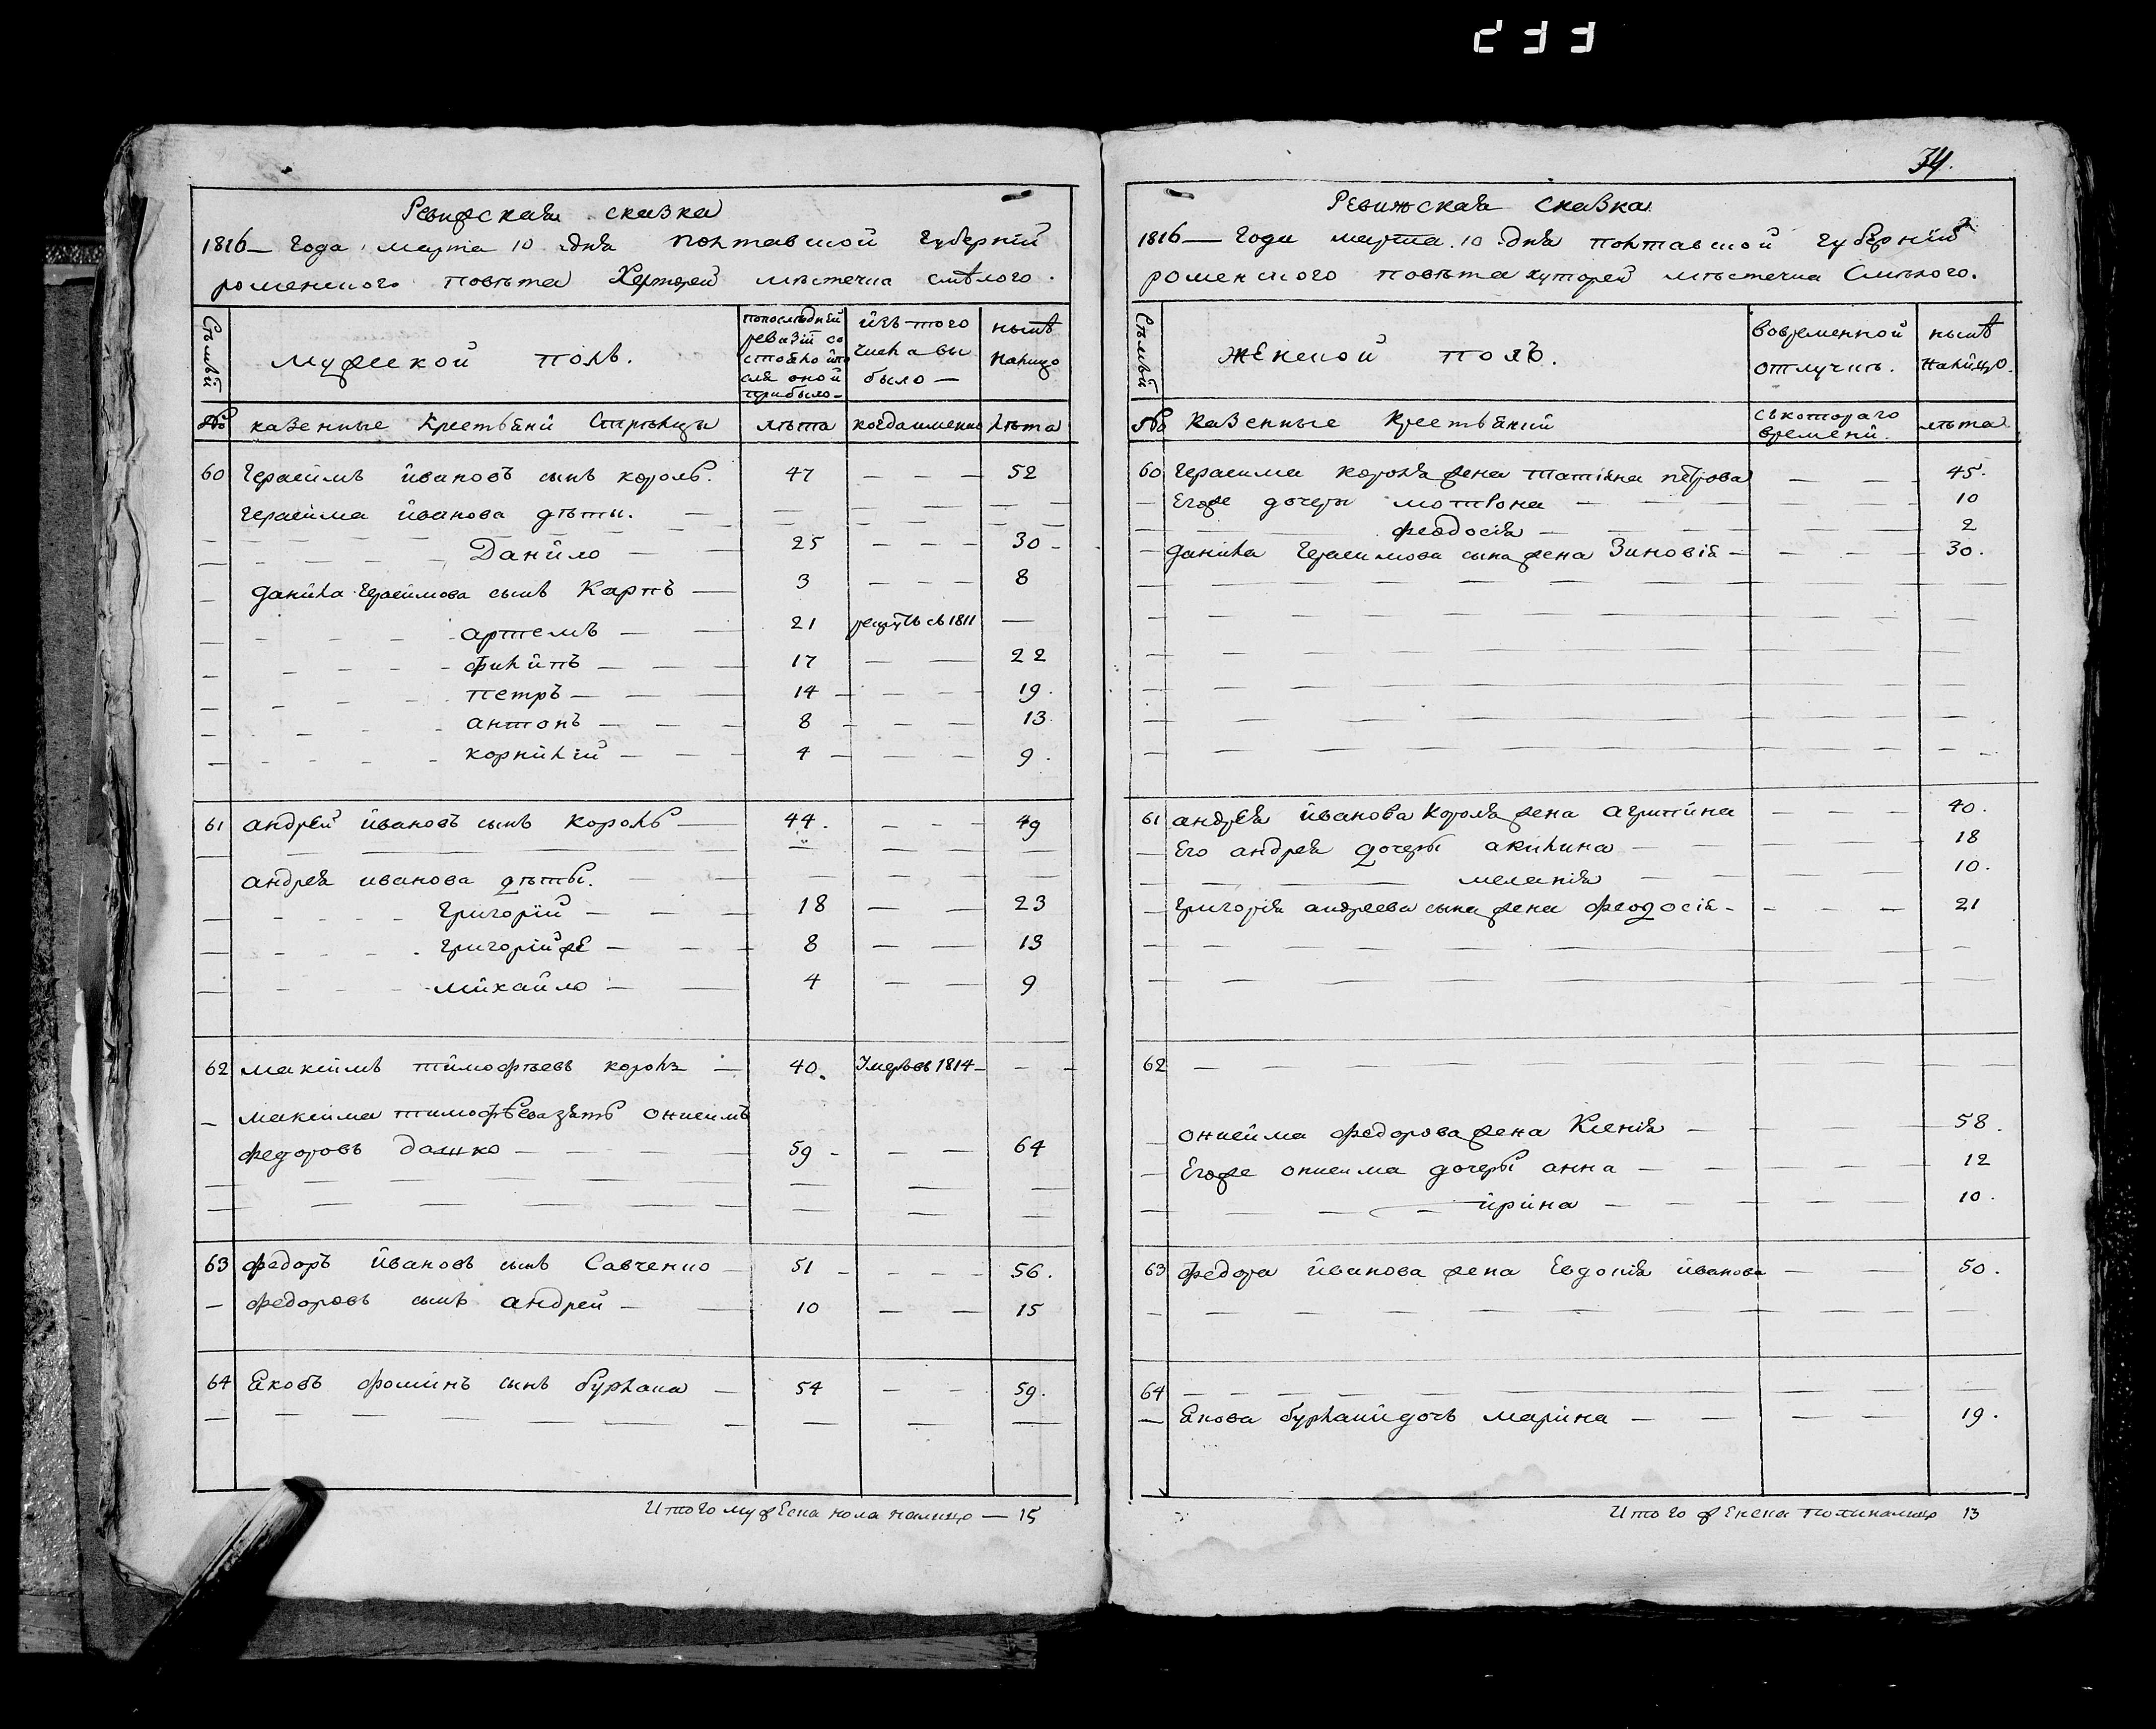 233
34.
Ревижская сказка
1816 — Года марта 10 дня Полтавской Губерніи
роменского повѣта Хуторей мѣстечка смѣлого.
Сѣмьи
мужеской полъ.
попослѣдней ревизіи состояло ипосля оной прибыло —
изъ того числа выбыло —
нынѣ налицо
№
казенные Крестьяни Стрѣльци
лѣта
когдаименно
лѣта
60 Герасимъ ивановъ сынъ король. 47 — — — 52
Герасима иванова дѣти.
Данило — 25 — — — 30
данила Герасимова сынъ Карпъ — 3 — — — 8
артемъ — 21 рекрутъ съ 1811 —
филипъ — 17 — — 22
петръ — 14 — — 19.
антонъ — 8 — — — 13
корнилій — 4 — — — 9.
61 андрей ивановъ сынъ король — 44. — — — 49
андрея иванова дѣти.
Григорій — 18 — — 23
Григорій же — 8 — — 13
михайло — 4 — — 9
62 максимъ тимофѣевъ король — 40. Умеръвъ 1814 —
максима тимофѣева зять онисимъ
федоровъ дашко — 59 — — 64
63 федоръ ивановъ сынъ Савченко 51 — — — 56.
федоровъ сынъ андрей — 10 — — 15
64 Яковъ фоминъ сынъ бурлака — 54 — — 59.
Итого мужеска пола налицо — 15
Ревижская сказка
1816 — Года марта 10 дня полтавской губерніи
роменского повѣта хуторей мѣстечка Смѣлого.
Сѣмьи
женской полъ.
вовременной отлучкѣ.
нынѣ налицо.
№
казенные Крестьяніи
съкотораго времени.
лѣта
60 Герасима короля жена татіяна петрова — — 45.
Егоже дочери мотрона — 10
феодосія — 2
данила Герасимова сына жена Зиновія — 30.
61 андрея иванова короля жена агрипина — — — 40.
Его андрея дочери акилина — 18
меланія 10.
Григорія андреева сына жена феодосія — 21
62
онисима федорова жена Ксенія — 58.
Егоже онисима дочери анна — 12
ирина — 10.
63 федора иванова жена Евдокія иванова — — 50.
64
Якова бурлаки дочь марина — 19.
Итого женска пола налицо 13